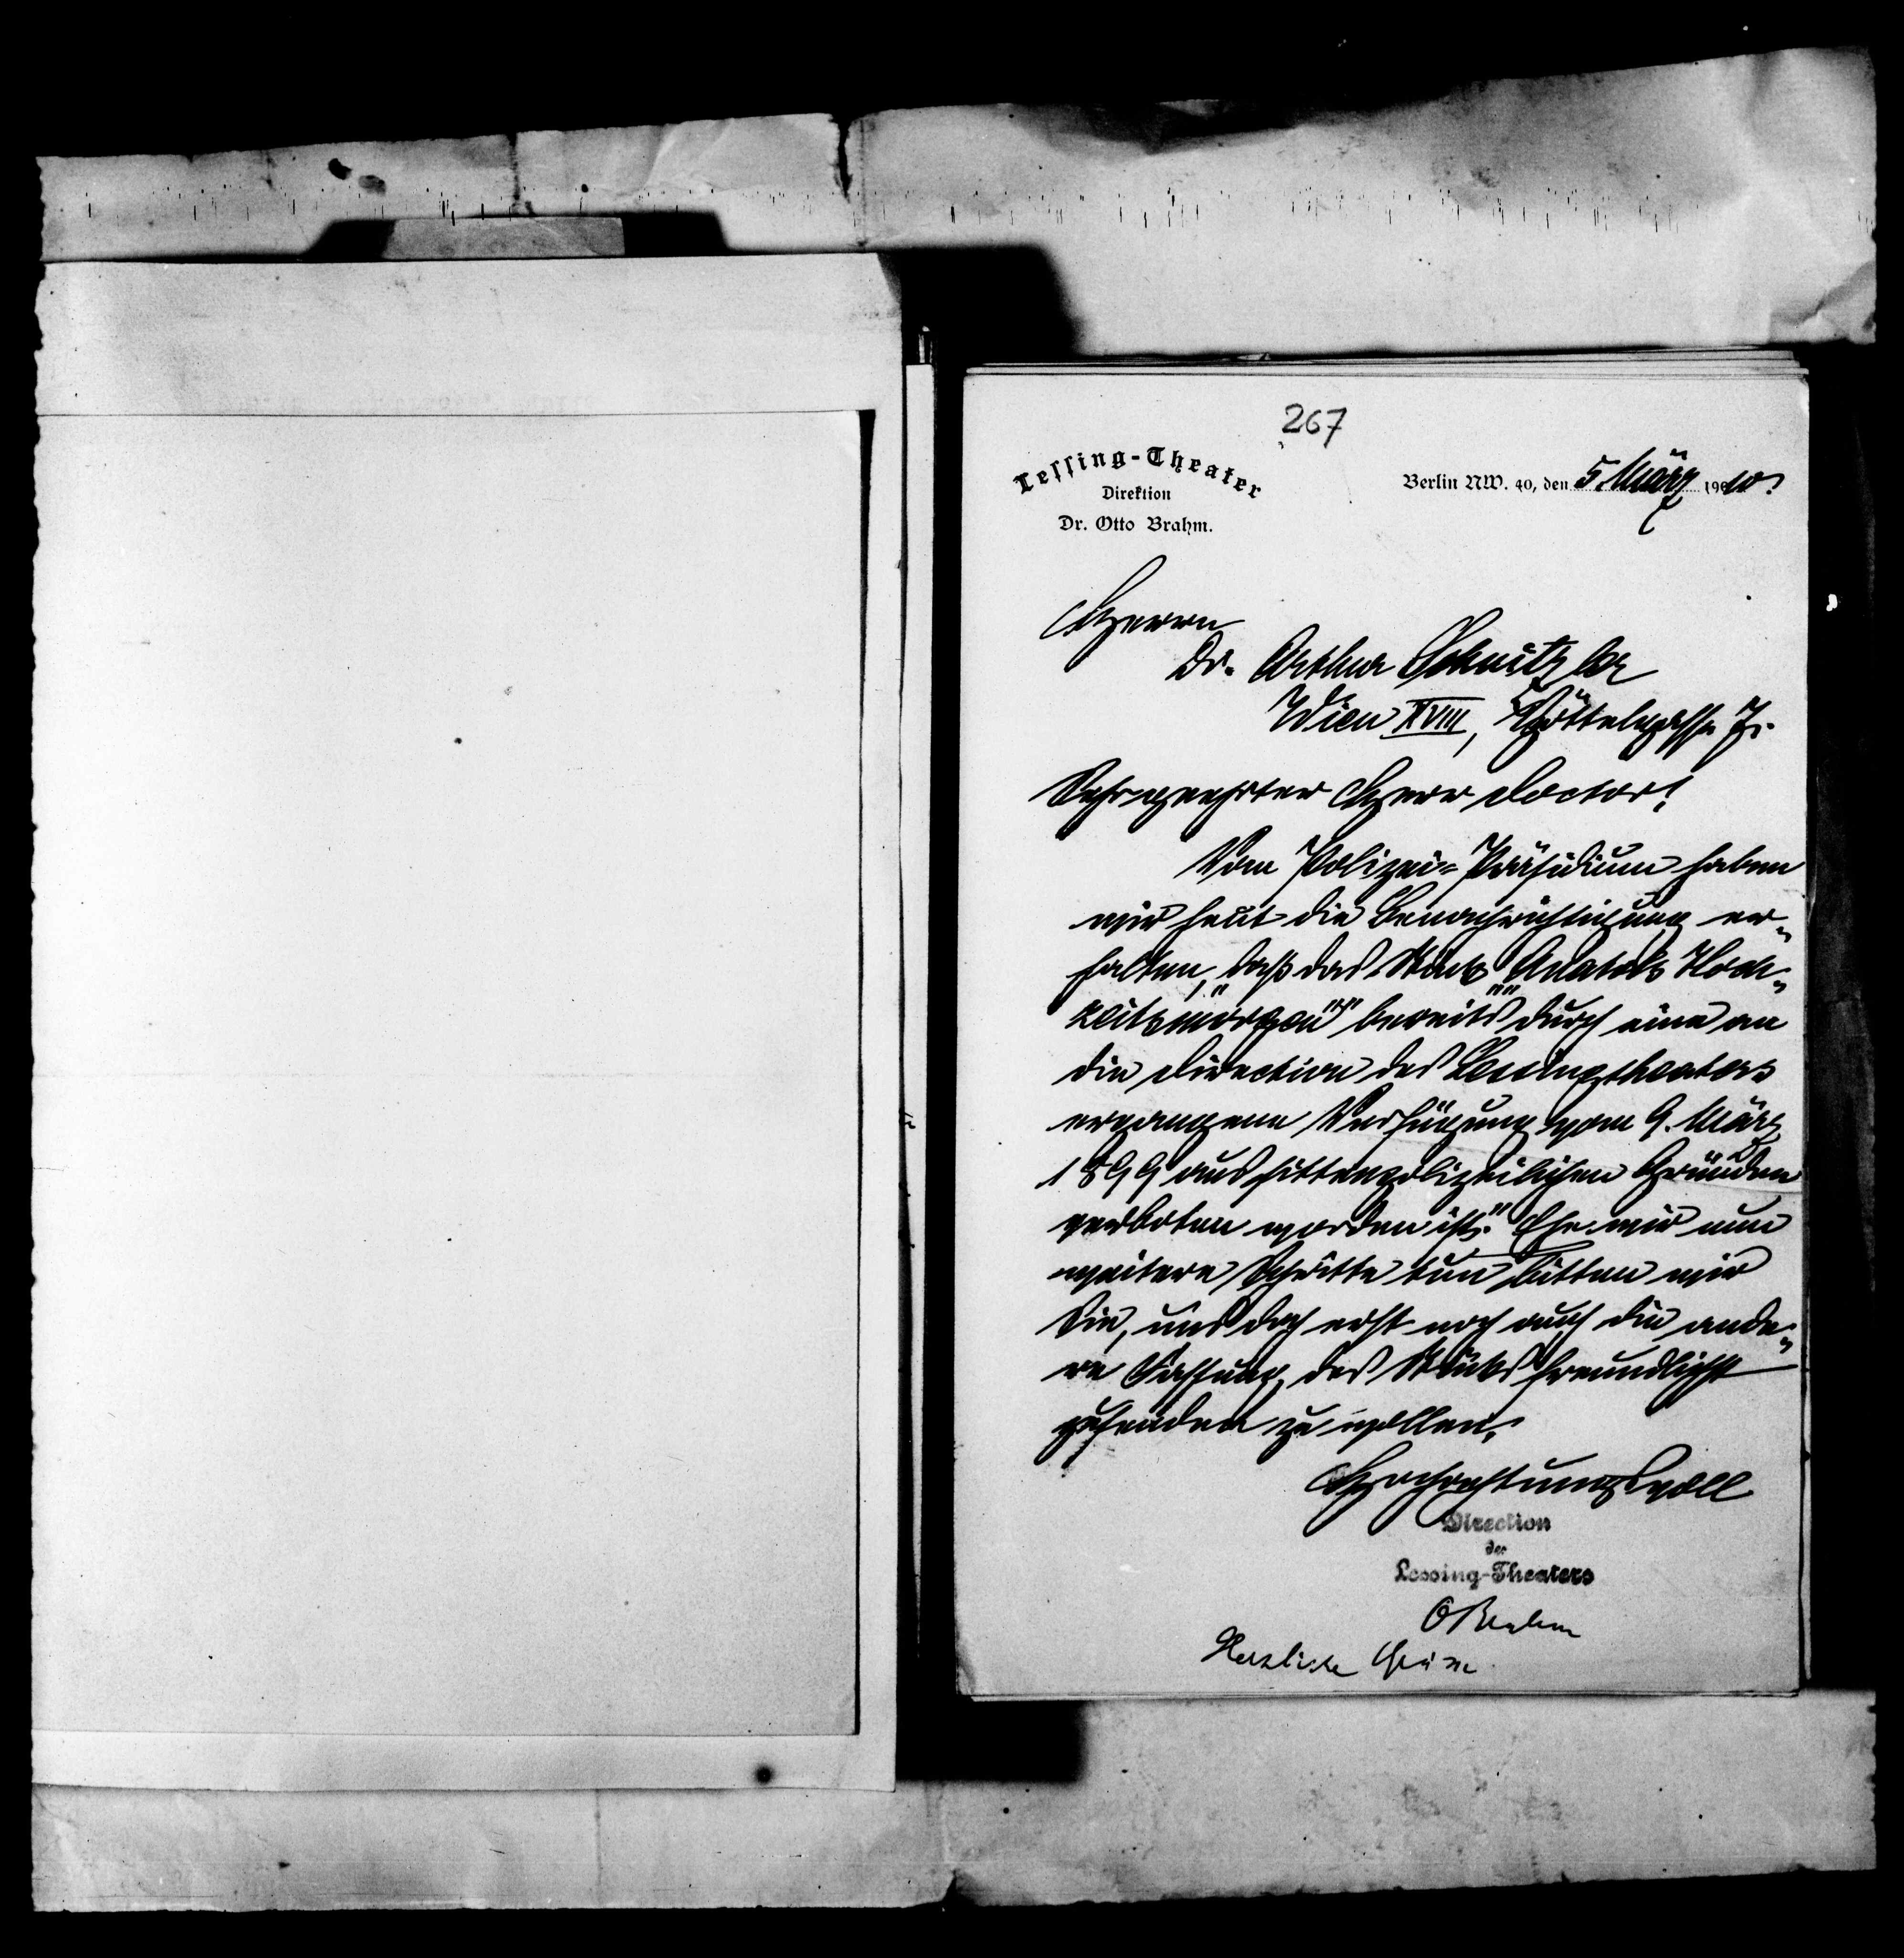 267
Lessing-Theater
Direktion
Dr. Otto Brahm.
Berlin NW. 40, den 5 März 1910.
Herrn
Dr. Arthur Schnitzler
Wien XVIII, Spöttelgasse 7.
Sehr geehrter Herr Doctor!
Vom Polizei-Präsidium haben
wir heut die Benachrichtigung er-
halten, „daß das Stück „„Anatols Hoch-
zeitsmorgen““ bereits durch eine an
die Direction des Lessingtheaters
ergangene Verfügung vom 9. März
1899 aus sittenpolizeilichen Gründen
verboten worden ist.“ Ehe wir nun
weitere Schritte tun bitten wir
Sie, uns doch erst noch auch die ande-
re Fassung des Stücks freundlichst
zusenden zu wollen.
Hochachtungsvoll
Direction
des
Lessing-Theaters
OBrahm
Herzliche Grüße